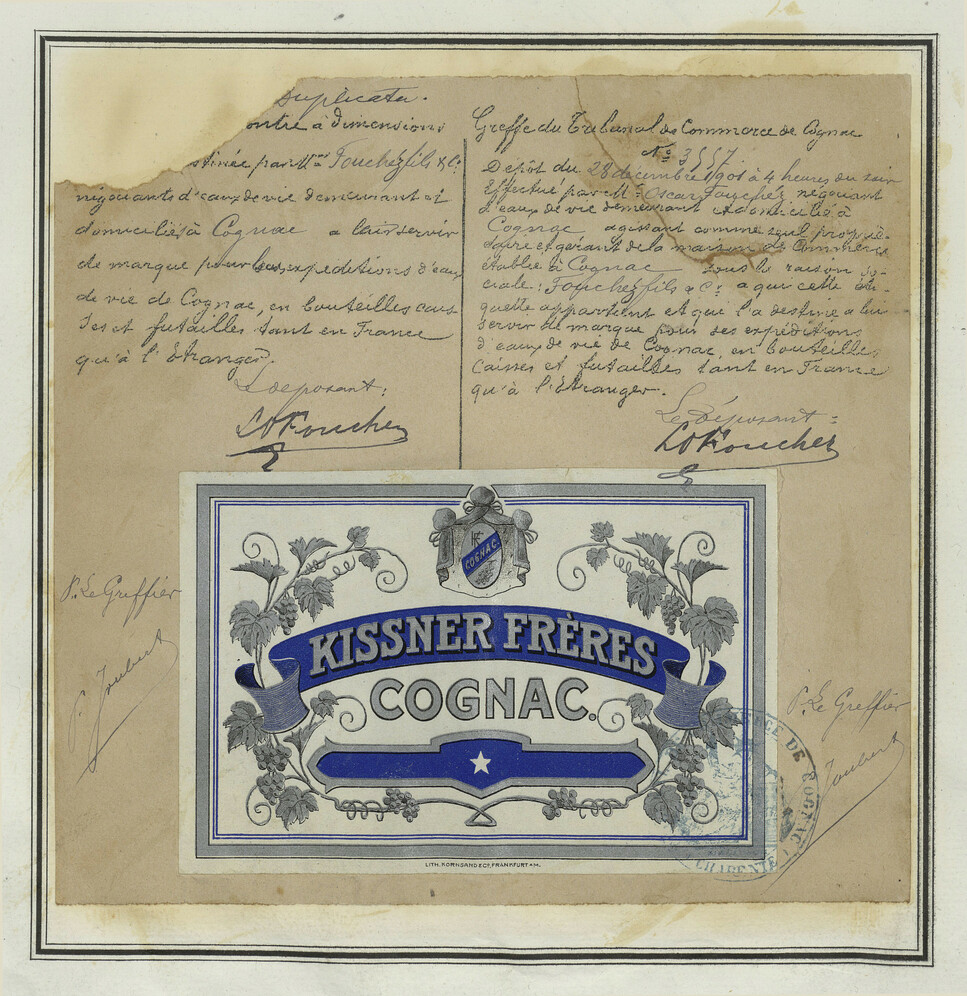 Duplicata.
ontre à dimensions
stinée par Mrs Foucher fils & Cie
négociants d'eaux de vie demeurant et
domiciliés à Cognac a lair servir
de marque pour les expéditions d'eaux
de vie de Cognac, en bouteilles cais-
ses et futailles tant en France
qu'à l'Etranger.
Le déposant:
Foucher
Greffe du Tribunal de Commerce de Cognac
No 3557
Depôt du 28 décembre 1901 à 4 heures du soir
effectué par Mr Oscar Foucher négociant
d'eaux de vie demeurant et domicilié à
Cognac, agissant comme seul proprié-
taire et gérant de la maison de Commerce
établie à Cognac sous la raison so-
ciale: Foucher fils & Cie a qui cette éti-
quette appartient et qui l'a destinée a lui
servir de marque pour ses expéditions
d'eaux de vie de Cognac, en bouteilles
Caisses et futailles tant en France
qu'à l'Etranger.
Le Déposant:
Foucher
P. Le Greffier
P. Joubert
COGNAC
KISSNER FRÈRES
COGNAC.
LITH. KORNSAND & Co, FRANKFURT a/M.
P. Le Greffier
Joubert
RCE DE COGNAC
CHARENTE